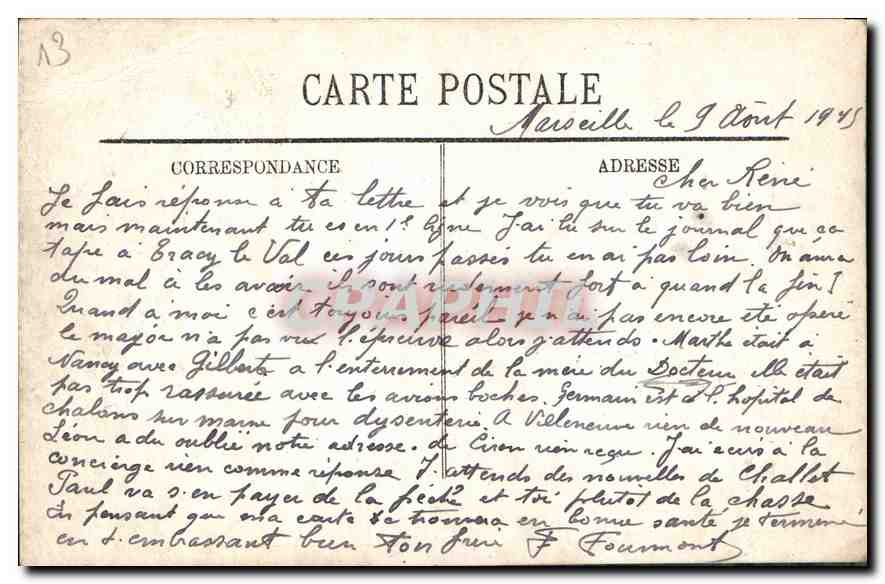 13
CARTE POSTALE
Marseille le 9 Août 1915
CORRESPONDANCE
ADRESSE
Cher René
Je fais réponse à ta lettre et je vois que tu va bien
mais maintenant tu es en 1e ligne J'ai lu sur le journal que ça
tape à Tracy le Val ces jours passés tu en ai pas loin. On aura
du mal à les avoir ils sont rudement fort à quand la fin !
Quand a moi c'est toujours pareil je n'ai pas encore été opéré
le major n'a pas vu l'épreuve alors j'attends. Marthe était à
Nancy avec Gilberte a l'enterrement de la mère du Docteur elle était
pas trop rassurée avec les avions boches. Germain est à l'hopital de
chalons sur marne pour dysenterie. A Villeneuve rien de nouveau
Léon a du oublié notre adresse. de Ciron rien reçu. J'ai ecris à la
concierge rien comme réponse J'attends des nouvelles de Challet
Paul va s'en payer de la pêche et toi plutot de la chasse
En pensant que ma carte te trouvera en bonne santé je termine
en t'embrassant bien ton frère F Fourmont
CPAPHIL